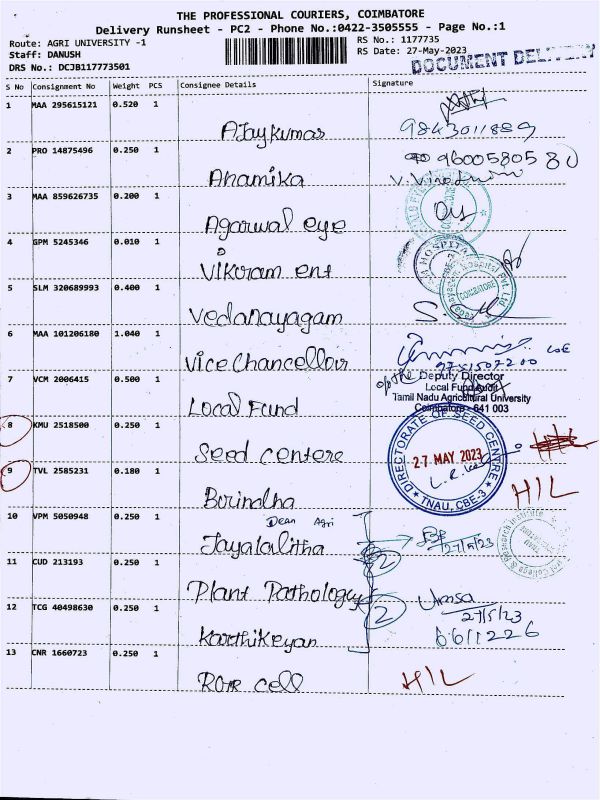 THE PROFESSIONAL COURIERS, COIMBATORE
Delivery Runsheet - PC2 - Phone No.:0422-3505555 - Page No.:1
Route: AGRI UNIVERSITY -1
Staff: DANUSH
DRS No.: DCJB117773501
RS No.: 1177735
RS Date: 27-May-2023
DOCUMENT DELIVERY
S No Consignment No Weight PCS Consignee Details Signature
1 MAA 295615121 0.520 1
Ajaykumar 9843011889
2 PRO 14875496 0.250 1
Anamika 9600580580
3 MAA 859626735 0.200 1
Agarwal eye
4 GPM 5245346 0.010 1
Vikram ent
5 SLM 320689993 0.400 1
Vedanayagam
COIMBATORE
6 MAA 101206180 1.040 1
Vice Chancellor
9751507200
7 VCM 2006415 0.500 1
Local Fund
o/o the Deputy Director
Local Fund Audit
Tamil Nadu Agricultural University
Coimbatore - 641 003
8 KMU 2518500 0.250 1
Seed centere
DIRECTORATE OF SEED CENTRE
27 MAY 2023
TNAU, CBE-3
9 TVL 2585231 0.180 1
H/L
10 VPM 5050948 0.250 1
Dean Agri
Jayalalitha 27/5/23
11 CUD 213193 0.250 1
2
Plant Pathology
12 TCG 40498630 0.250 1
2 27/5/23
Karthikeyan 6611226
13 CNR 1660723 0.250 1
cell H/L